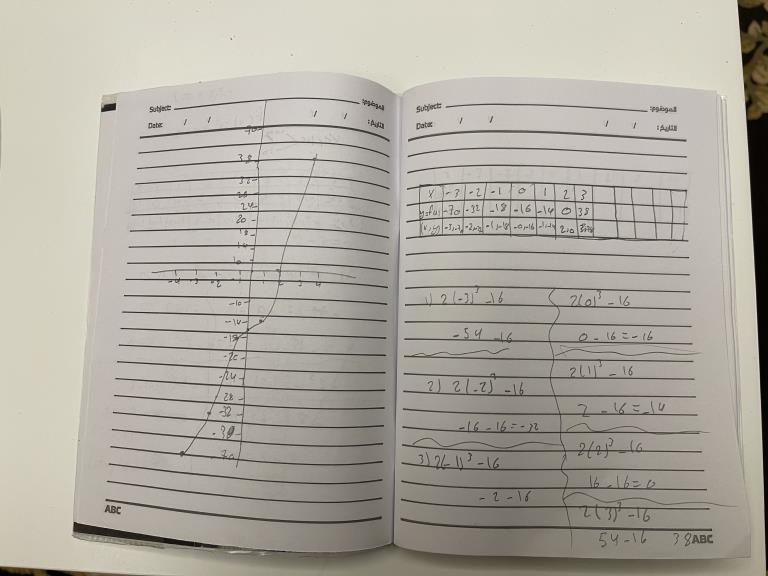 Subject: الموضوع:
Date: / / / / التاريخ:
70
38
32
28
24
20
18
14
10
-4 -3 -2 -1 1 2 3 4
-10
-14
-18
-20
-24
28
-32
-38
-70
ABC
Subject: الموضوع:
Date: / / / / التاريخ:
X -3 -2 -1 0 1 2 3
-70 -32 -18 -16 -14 0 38
-3,-70 -2,-32 -1,-18 -0,-16 2,0
1) 2(-3)³-16
-54 -16
2) 2(-2)³-16
-16-16=-32
3) 2(-1)³-16
-2-16
2(0)³-16
0-16=-16
2(1)³-16
2-16=-14
2(2)³-16
16-16=0
2(3)³-16
54-16 38
ABC